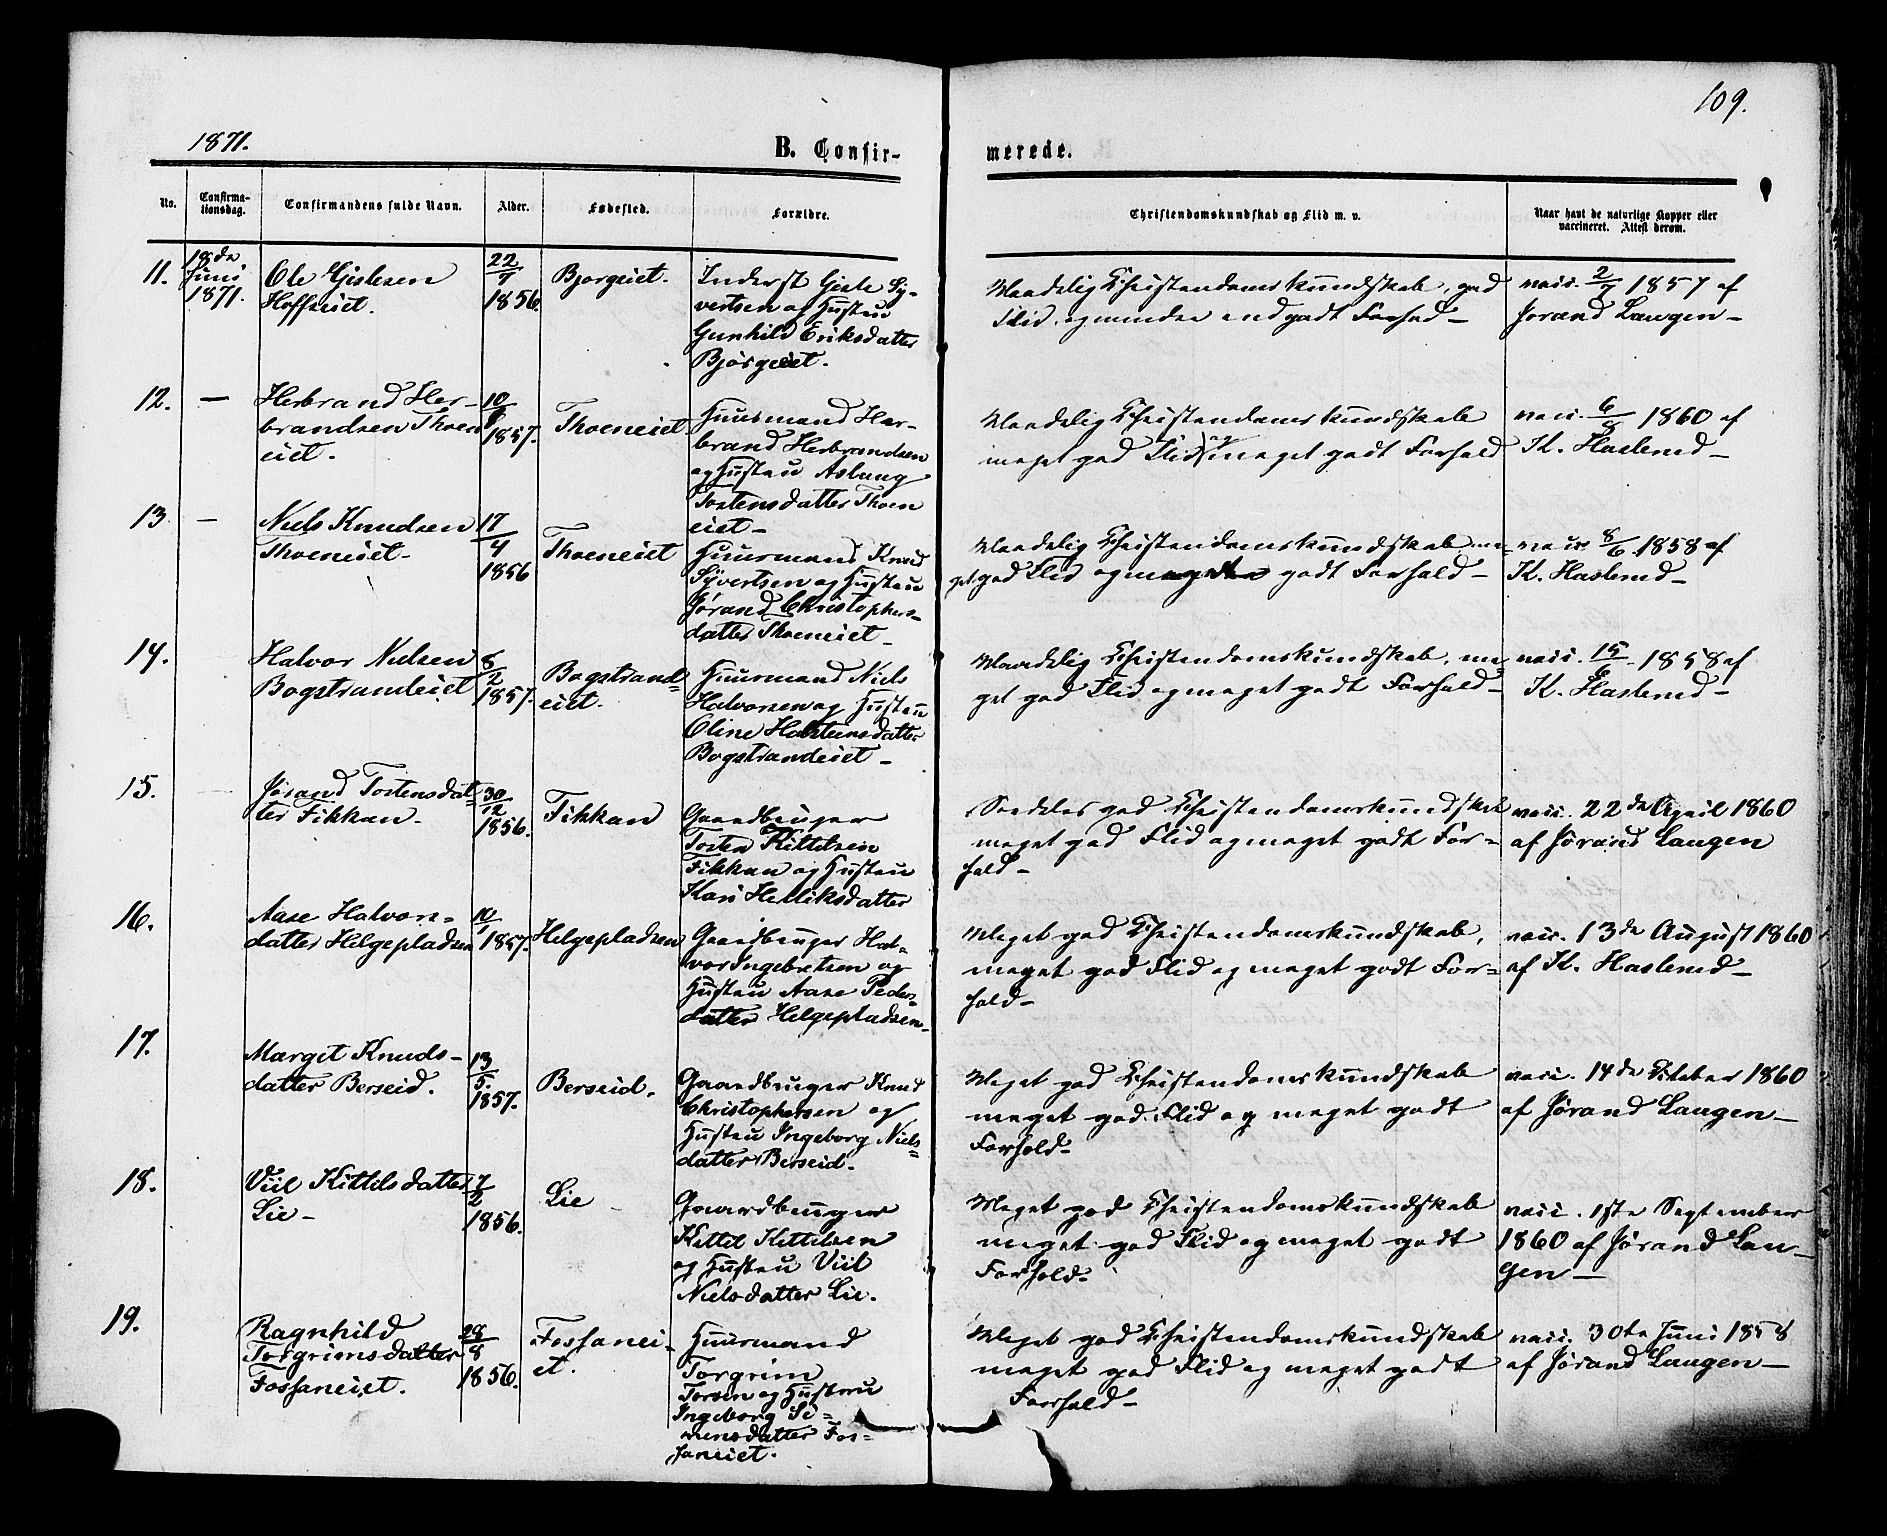 109.
1871.
B. Confir-
merede.
No.
Confirma-
tionsdag.
Confirmandens fulde Navn.
Alder.
Fødested.
Forældre.
Christendomskundskab og Flid m. v.
Naar havt de naturlige Kopper eller
vaccineret. Attest derom.
11.
18de
Juni
1871.
Ole Gislesen
Hoffseiet.
22/7
1856.
Bjorgeiet.
Inderst Gisle Sy-
vertsen og Hustru
Gunhild Eriksdatter
Bjørgeiet.
Maadelig Christendomskundskab, god
Flid, og mindre end godt Forhold –
vacc. 2/7 1857 af
Jorand Laugen –
12.
—
Herbrand Her-
brandsen Thoen
eiet.
10/6
1857.
Thoeneiet
Huusmand Her-
brand Herbrandsen
og Hustru Aslaug
Tostensdatter Thoen
eiet –
Maadelig Christendomskundskab
meget god Flid og meget godt Forhold
vacc. 6/8 1860 af
K. Haslerud –
13.
—
Niels Knudsen
Thoeneiet –
17/4
1856
Thoeneiet
Huusmand Knud
Syvertsen og Hustru
Jørand Christophers-
datter Thoeneiet –
Maadelig Christendomskundskab me-
get god Flid og meget godt Forhold –
vacc. 8/6 1858 af
K. Haslerud –
14.
Halvor Nielsen
Bogstrandeiet
8/2
1857.
Bogstrand-
eiet.
Huusmand Niels
Halvorsen og Hustru
Oline Halsteinsdatter
Bogstrandeiet –
Maadelig Christendomskundskab, me-
get god Flid og meget godt Forhold –
vacc. 15/6 1858 af
K. Haslerud –
15.
Jørand Tostensdat-
ter Fikkan –
30/12
1856.
Fikkan
Gaardbruger
Tosten Kittilsen
Fikkan og Hustru
Kari Helliksdatter
Særdeles god Christendomskundskab
meget god Flid og meget godt For-
hold –
vacc. 22de April 1860
af Jørand Laugen
16.
Aase Halvors-
datter Helgepladsen
10/1
1857.
Helgepladsen
Gaardbruger Hal-
vor Ingebretsen og
Hustru Aase Peders-
datter Helgepladsen –
Meget god Christendomskundskab,
meget god Flid og meget godt For-
hold –
vacc. 13de August 1860
af K. Haslerud –
17.
Marget Knuds-
datter Berseid.
13/5
1857.
Berseid.
Gaardbruger Knud
Christophersen og
Hustru Ingeborg Niels-
datter Berseid –
Meget god Christendomskundskab
meget god Flid og meget godt
Forhold –
vacc. 14de October 1860
af Jørand Laugen –
18.
Viil Kittilsdatter
Lie –
7/2
1856.
Lie
Gaardbruger
Kittil Kittilsen
og Hustru Viil
Nielsdatter Lie.
Meget god Christendomskundskab
meget god Flid og meget godt
Forhold –
vacc. 1ste September
1860 af Jørand Lau-
gen –
19.
Ragnhild
Torgrimsdatter
Fossaneiet.
28/8
1856.
Fossanei-
et.
Huusmand
Torgrim
Torsen og Hustru
Ingeborg
Fos-
saneiet.
Meget god Christendomskundskab
meget god Flid og meget godt
Forhold –
vacc. 30te Juni 1858
af Jørand Laugen –